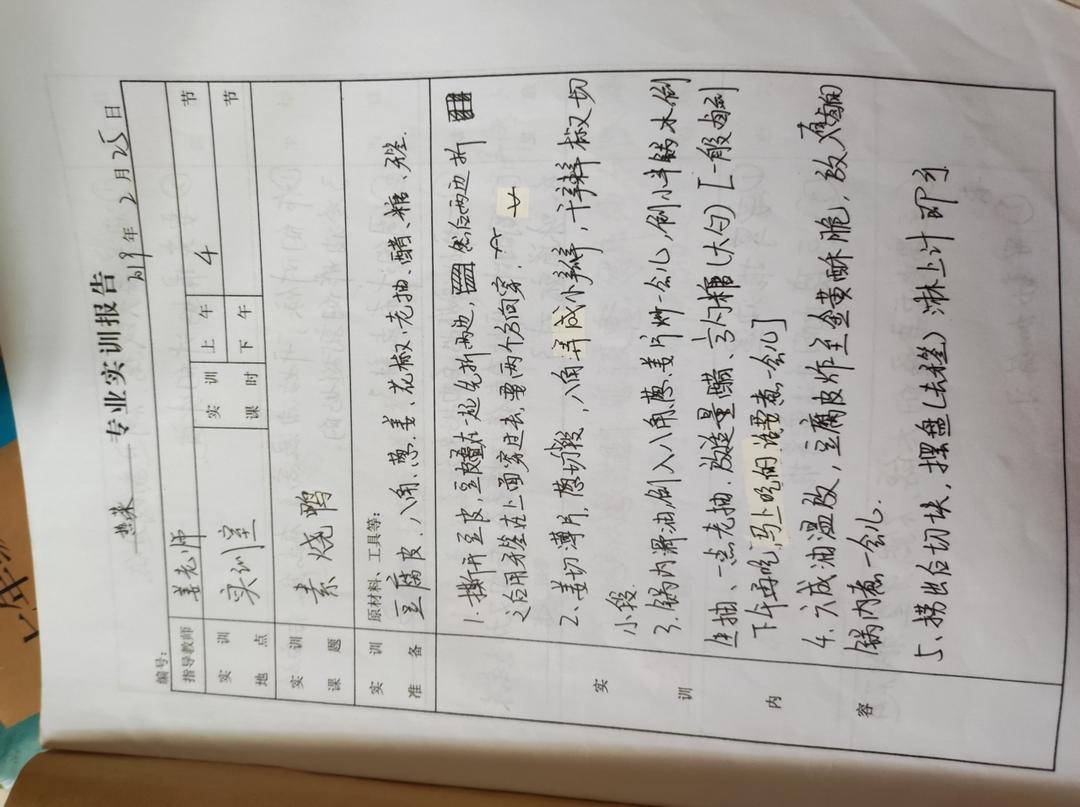 热菜 专业实训报告
编号: 2019年2月25日
指导教师 姜老师 实训课时 上午 4 节
实训地点 实训室 下午 节
实训课题 素烧鸭
实训准备 原材料、工具等:
豆腐皮、八角、葱、姜、花椒、老抽、醋、糖、
实训内容
1. 撕开豆皮,豆皮叠在一起先折两边, 然后两边折
之后用牙签在上面穿过去,要两个方向穿,
2、姜切薄片,葱切段,八角弄成小瓣,干辣椒切
小段
3、锅内滑油,倒入八角葱姜片炒一会儿,倒小半锅水,倒
生抽、一点老抽,放适量醋、3勺糖(大勺)[一般卤到
下午再吃,马上吃的话要煮一会儿]
4、六成油温放,豆腐皮炸至金黄酥脆,放入卤
锅内煮一会儿.
5、捞出后切块,摆盘(去签)淋上汁即可